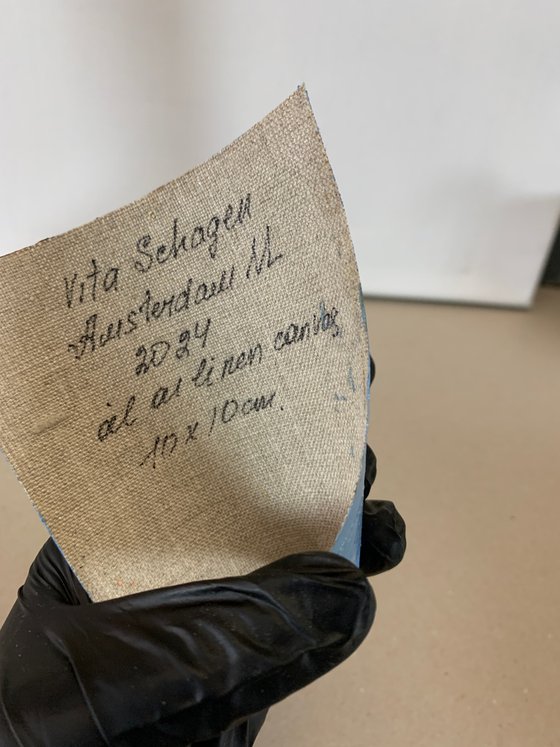 Vita Schagen
Amsterdam NL
2024
oil on linen canvas
10 x 10 cm.